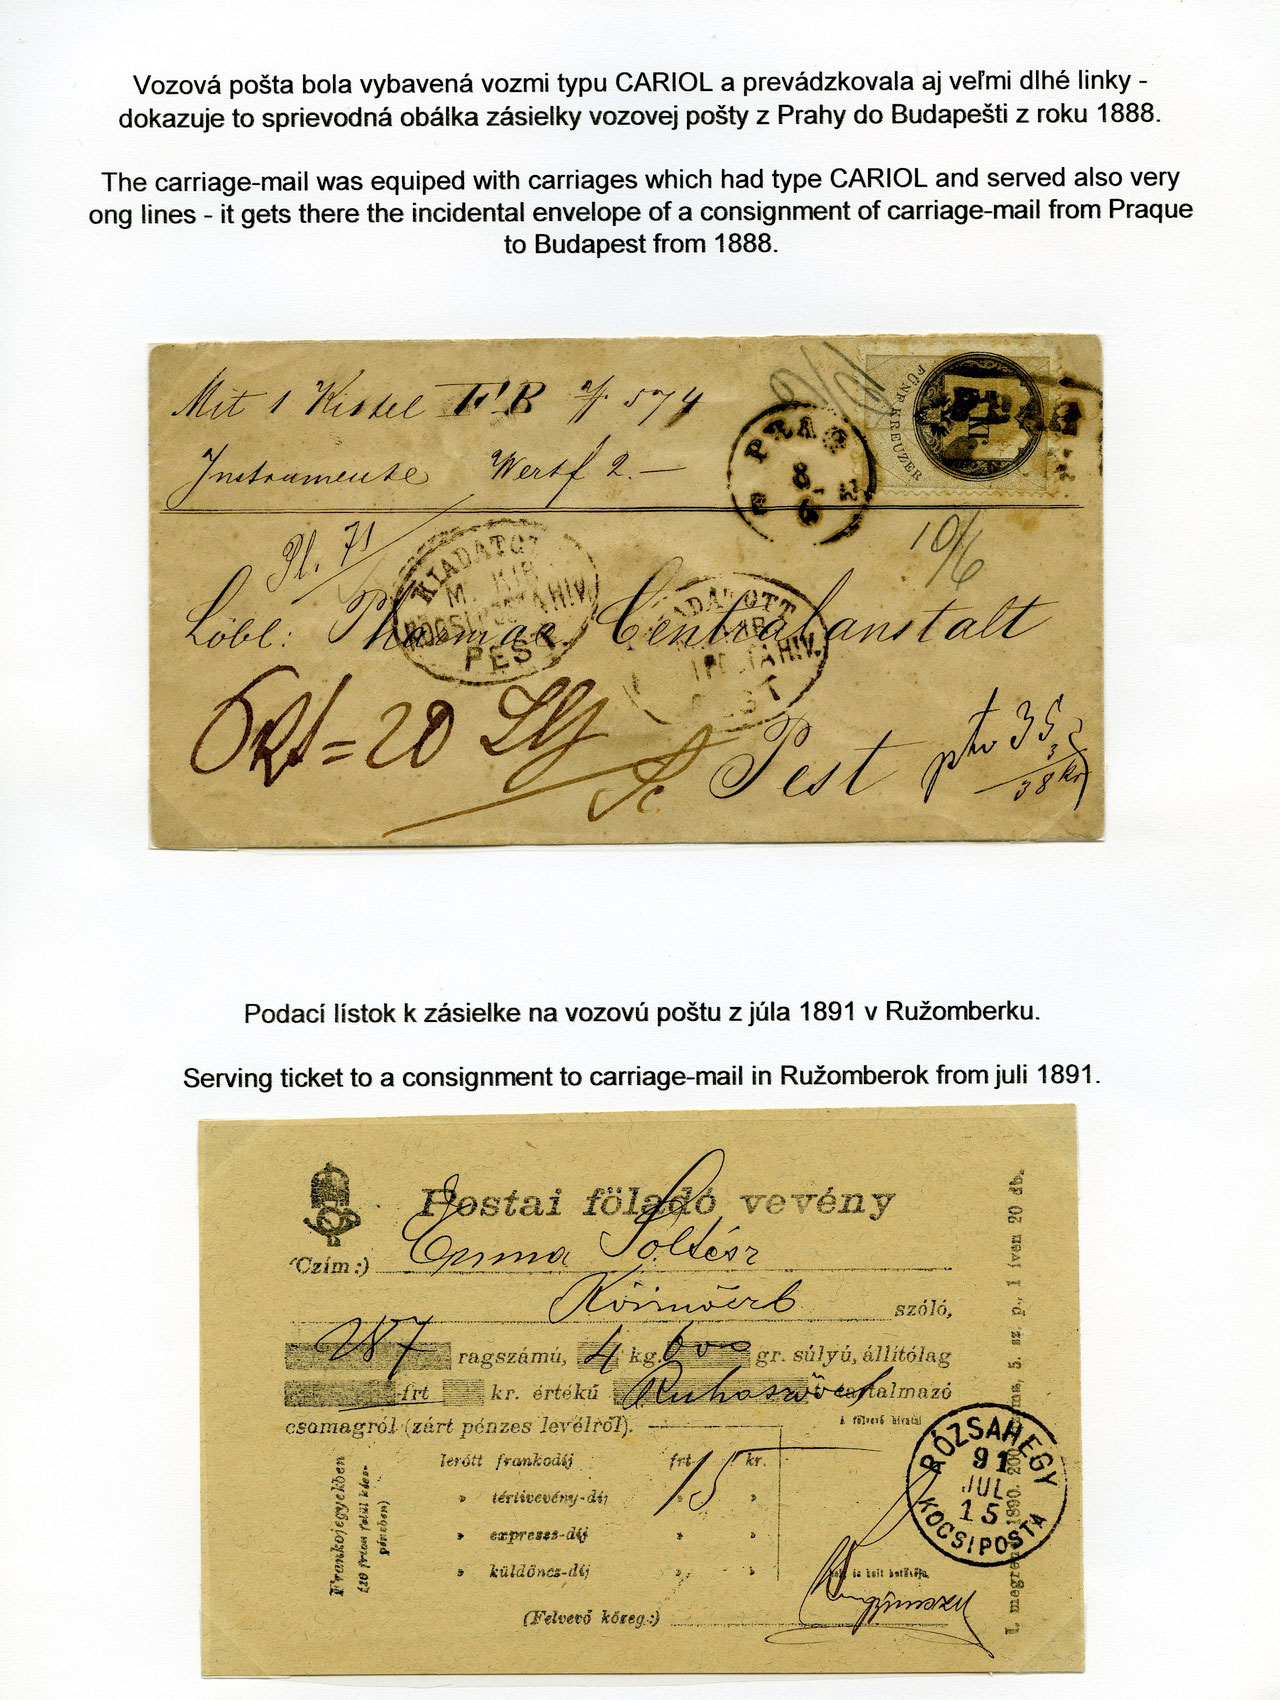 Vozová pošta bola vybavená vozmi typu CARIOL a prevádzkovala aj veľmi dlhé linky -
dokazuje to sprievodná obálka zásielky vozovej pošty z Prahy do Budapešti z roku 1888.
The carriage-mail was equiped with carriages which had type CARIOL and served also very
ong lines - it gets there the incidental envelope of a consignment of carriage-mail from Praque
to Budapest from 1888.
Mit 1 Kistel F B 574
Instrumente Wert f 2.—
FÜNF KREUZER
5 kr
PRAG
8
6
Pl. 71
10/6
KIADATOTT
M. KIR.
KOCSIPOSTAHIV.
PEST.
KIADATOTT
PEST
Löbl: Pharmac Centralanstalt
20
Pest
35
3
38 kr
Podací lístok k zásielke na vozovú poštu z júla 1891 v Ružomberku.
Serving ticket to a consignment to carriage-mail in Ružomberok from juli 1891.
Postai föladó vevény
(Czím:) Emma Soltész
szóló,
ragszámú, 4 kg. 600 gr. súlyú, állítólag
frt kr. értékű tartalmazó
csomagról (zárt pénzes levélről).
A fölvevő hivatal
Frankojegyekben
lerótt frankodíj frt 15 kr.
» tértivevény-díj » »
» expressz-díj » »
» küldöncz-díj » »
(Felvevő közeg:)
RÓZSAHEGY
91
JUL
15
KOCSIPOSTA
1 íven 20 db.